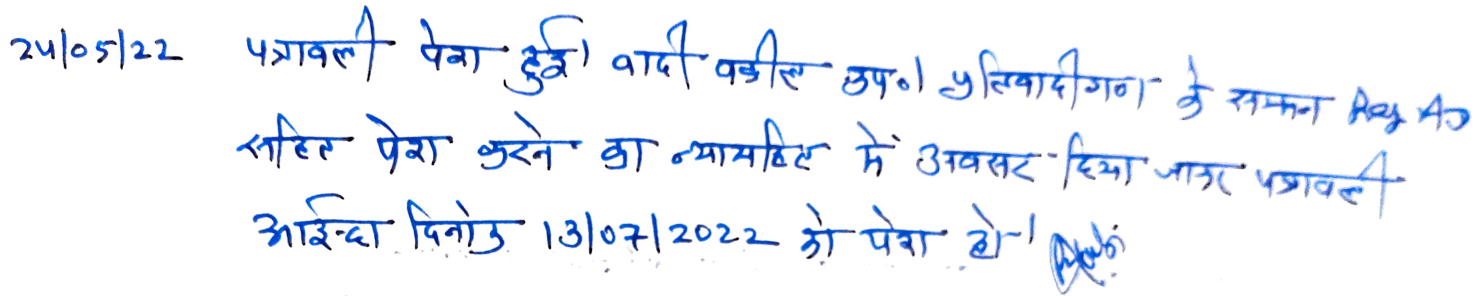 24/05/22 पत्रावली पेश हुई। वादी वकील उप०। प्रतिवादीगण के सम्मन Reg AD
सहित पेश करने का न्यायहित में अवसर दिया जाकर पत्रावली
आईन्दा दिनांक 13/07/2022 को पेश हो।